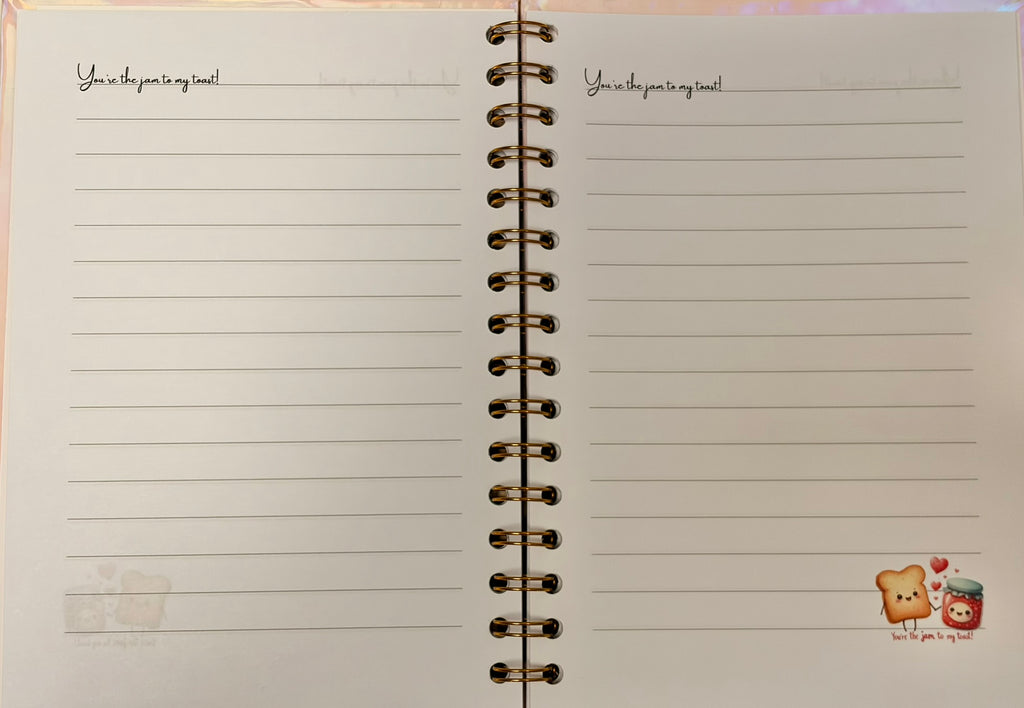 You're the jam to my toast!
You're the jam to my toast!
You're the jam to my toast!